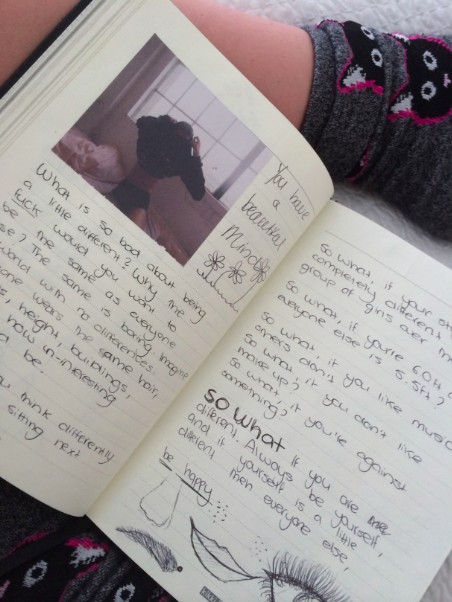 You have
a
beautiful
Mind
What is so bad about being
a little different? Why the
fuck would you want to
be me
se? The same as everyone
is boring. Imagine
world with no differences,
one wears the same hair,
s, height, buildings,
how un-interesting
d be.
u think differently
sitting next
So what if your
completely different
group of girls ever
So what if you're 60ft
everyone else is 5.5ft?
So what, if you don't like music
others don't like
so what if you
make up?
so what, if you're against
something?
SO WHAT if you are
different. Always be yourself,
and if yourself is a little
different then everyone
else,
be happy.